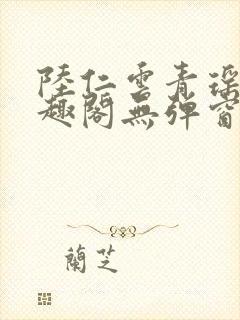 陸仁雲青瑤
趣閣無彈窗
蘭芝